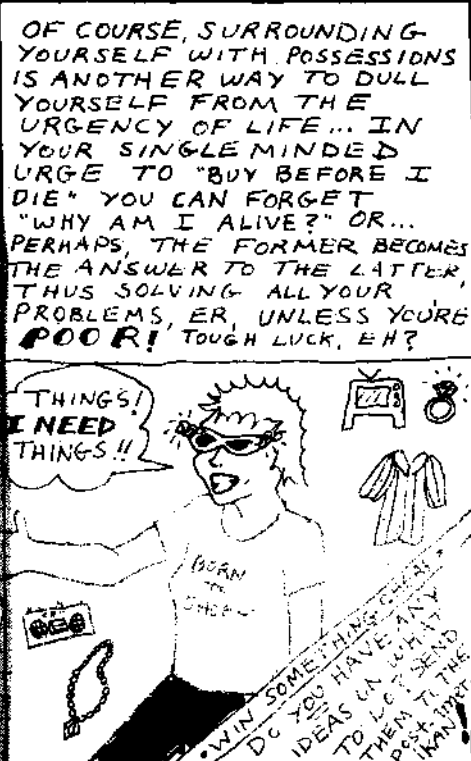 OF COURSE, SURROUNDING
YOURSELF WITH POSSESSIONS
IS ANOTHER WAY TO DULL
YOURSELF FROM THE
URGENCY OF LIFE... IN
YOUR SINGLE MINDED
URGE TO "BUY BEFORE I
DIE" YOU CAN FORGET
"WHY AM I ALIVE?" OR...
PERHAPS, THE FORMER BECOMES
THE ANSWER TO THE LATTER,
THUS SOLVING ALL YOUR
PROBLEMS, ER, UNLESS YOU'RE
POOR! TOUGH LUCK, EH?
THINGS!
I NEED
THINGS!!
BORN
TO
SHOP
• WIN SOMETHING GREAT •
DO YOU HAVE ANY
IDEAS ON WHAT
TO DO? SEND
THEM TO THE
POST.